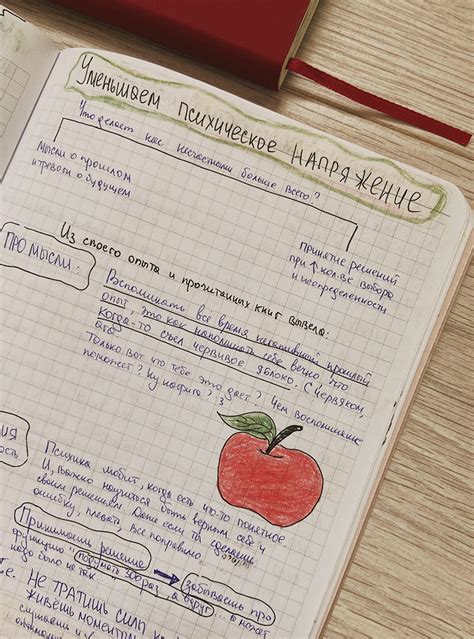 Уменьшаем психическое напряжение
Что делает нас несчастными больше всего?
Мысли о прошлом
и тревоги о будущем
Принятие решений
при ↑ кол-ве выбора
и неопределенности
Из своего опыта и прочитанных книг вывела:
ПРО МЫСЛИ:
Вспоминать все время негативный прошлый
опыт, это как напоминать себе вечно, что
когда-то съел червивое яблоко. С червяком,
ага
Только вот что тебе это даёт? Чем воспоминание
поможет? Ну нафига?
Психика любит, когда есть что-то понятное
И, важно научиться быть верным себе и
своим решениям. Даже если ты сделаешь
ошибку, плевать, все поправимо.
Принимаешь решение → забываешь про
функцию "подумать 200 раз, а вдруг... а может
надо было не так..."
Не тратишь силы
живёшь моментом
слушаешь и